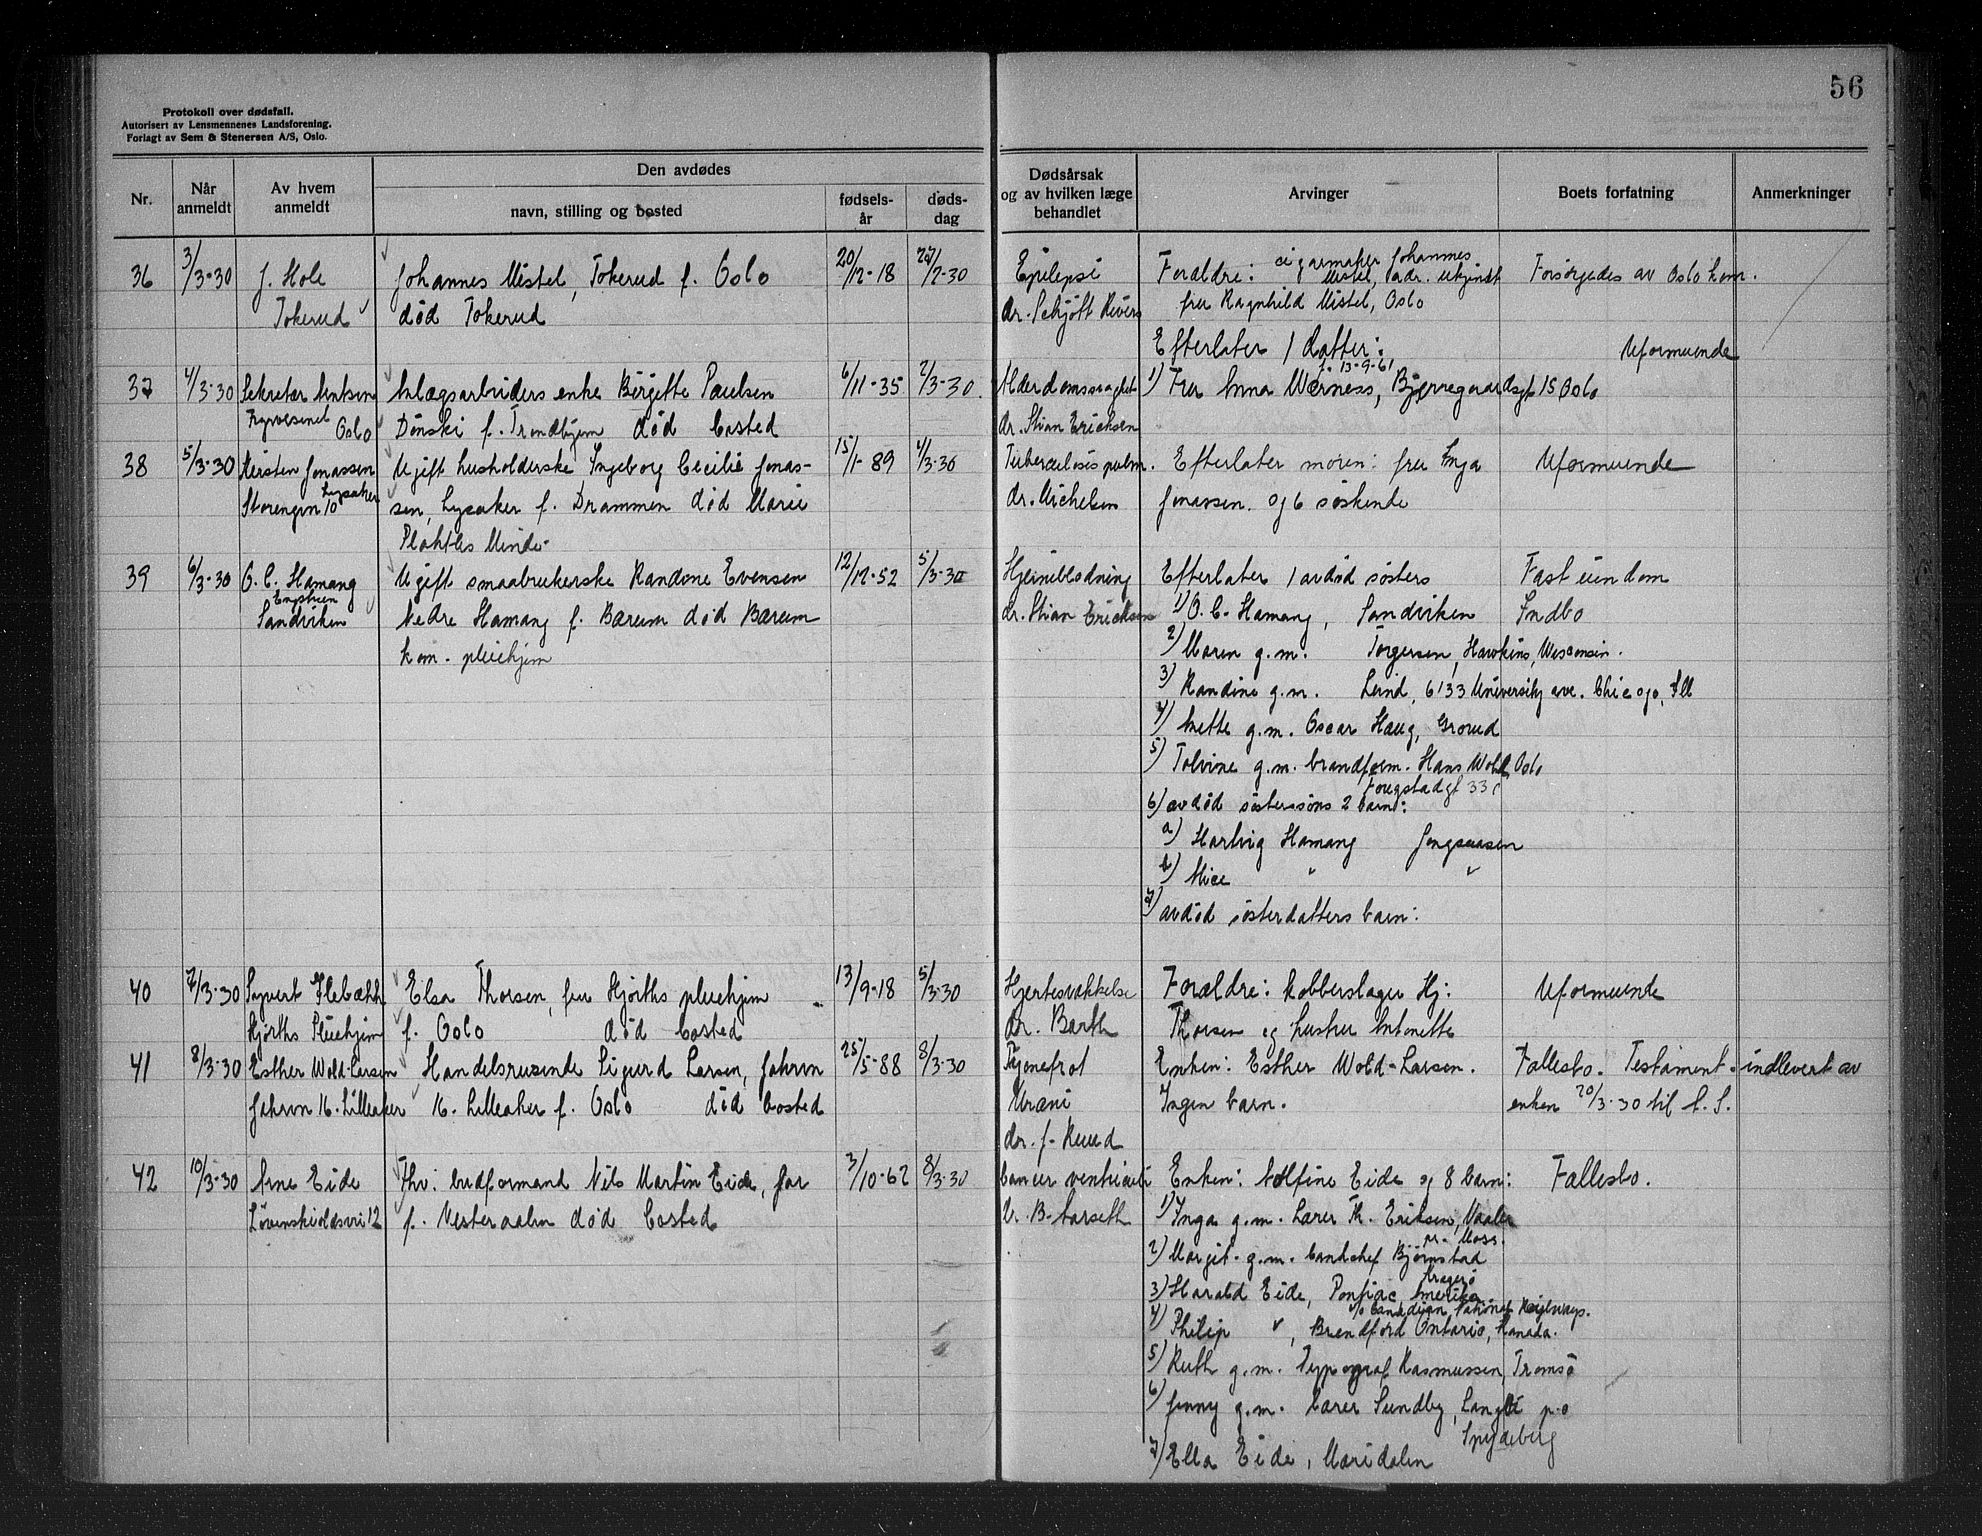 56
Protokoll over dødsfall.
Autorisert av Lensmennenes Landsforening.
Forlagt av Sem & Stenersen A/S, Oslo.
Nr.
Når anmeldt
Av hvem anmeldt
Den avdødes
navn, stilling og bosted
fødsels-år
døds-dag
Dødsårsak og av hvilken læge behandlet
Arvinger
Boets forfatning
Anmerkninger
36 3/3-30 J. Hole Johannes Mistel, Tokerud f. Oslo 20/12-18 27/2-30 Epilepsi Forældre: cigarmaker Johannes
Mistel, adr. ukjendt Forsørgedes av Oslo kom.
Tokerud død Tokerud dr. Schjøtt Rivers fru Ragnhild Mistel, Oslo
Efterlater 1 datter: Uformuende
37 4/3-30 Sekretær Arntsen Anlægsarbeiders enke Birgitte Paulsen 6/11-35 2/3-30. Alderdomssvaghet 1) Fru Anna Werness, Bjerregaardsgt 15 Oslo
f. 13-9-61
Fygvesenet Oslo Dønski f. Trondhjem død bosted dr. Stian Ericksen
38 5/3-30 Kirsten Jonassen Ugift husholderske Ingeborg Cecilie Jonas- 15/1-89 4/3-30 Tuberculosis pulm. Efterlater moren: fru Inga Uformuende
Storengvn 10 Lysaker sen, Lysaker f. Drammen død Marie dr. Michelsen Jonassen. og 6 søskende
Plahtes Minde-
39 6/3-30 O. C. Hamang Ugift smaabrukerske Randine Evensen 12/12-52 5/3-30 Hjerneblødning Efterlater 1 avdød søsters Fast eiendom
Engstuen
Sandviken Nedre Hamang f. Bærum død Bærum dr. Stian Ericksen 1) O. C. Hamang, Sandviken Indbo
kom. pleiehjem 2) Maren g.m. Torgersen, Hawkins, Wisconsin.
3) Randine g.m. Lund, 6133 University ave. Chicago, Ill
4) Anette g.m. Oscar Haug, Grorud
5) Tolvine g.m. brandform. Hans Wold, Oslo
33c
6) avdød søstersøns 2 barn:
a) Hartvig Hamang Jongsaasen
b) Alice " "
7) avdød søsterdatters barn:
40 7/3-30 Syvert Flebækk Elsa Thorsen, fru Hjorths pleiehjem 13/9-18 5/3-30 Hjertesvækkelse Forældre: kobberslager Hj: Uformuende
Hjorths Pleiehjem f. Oslo død bosted dr. Barth Thorsen og hustru Antonette
41 8/3-30 Esther Wold-Larsen Handelsreisende Sigurd Larsen, Jahrvn 25/5-88 8/3-30 Enken: Esther Wold-Larsen. Fallesbo. Testament indlevert av
Jahrvn 16. Lilleaker 16. Lilleaker f. Oslo død bosted Uræmi Ingen barn. enken 20/3-30 til S. S.
dr. J. Ruud
42 10/3-30 Arne Eide Fhv: budformand Nils Martin Eide, Jar 3/10-62 8/3-30 Cancer ventriculi Enken: Adolfine Eide og 8 barn: Fallesbo.
Løvenskioldsvei 12 f. Vesteraalen død bosted V. B. Aarseth 1) Inga g.m. lærer Th. Eriksen, Vaaler
pr. Moss.
2) Margit g.m. Bjørnstad
Kragerø
3) Harald Eide, Pontiac, Amerika
c/o Canadian National
4) Philip " , Brendford Ontario, Kanada.
5) Ruth g.m. Typograf Rasmussen, Tromsø
6) Jenny g.m. lærer Sundby, p.o
Spydeberg
7) Ella Eide, Maridalen